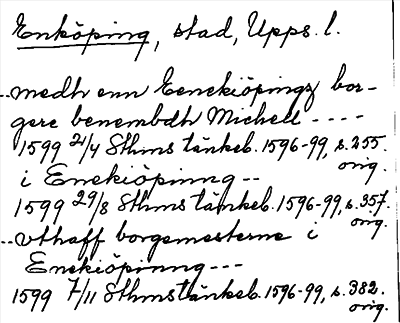 Enköping, stad, Upps. l.
..medh enn Eenekiöpingz bor-
gere benembdh Michell - - - -
1599 21/4 Sthms tänkeb. 1596-99, s. 255.
orig.
i Enekiöpinng - -
1599 29/8 Sthms tänkeb. 1596-99, s. 357.
orig.
..vthaff borgemesterne i
Enekiöpinng - - -
1599 7/11 Sthms tänkeb. 1596-99, s. 382.
orig.